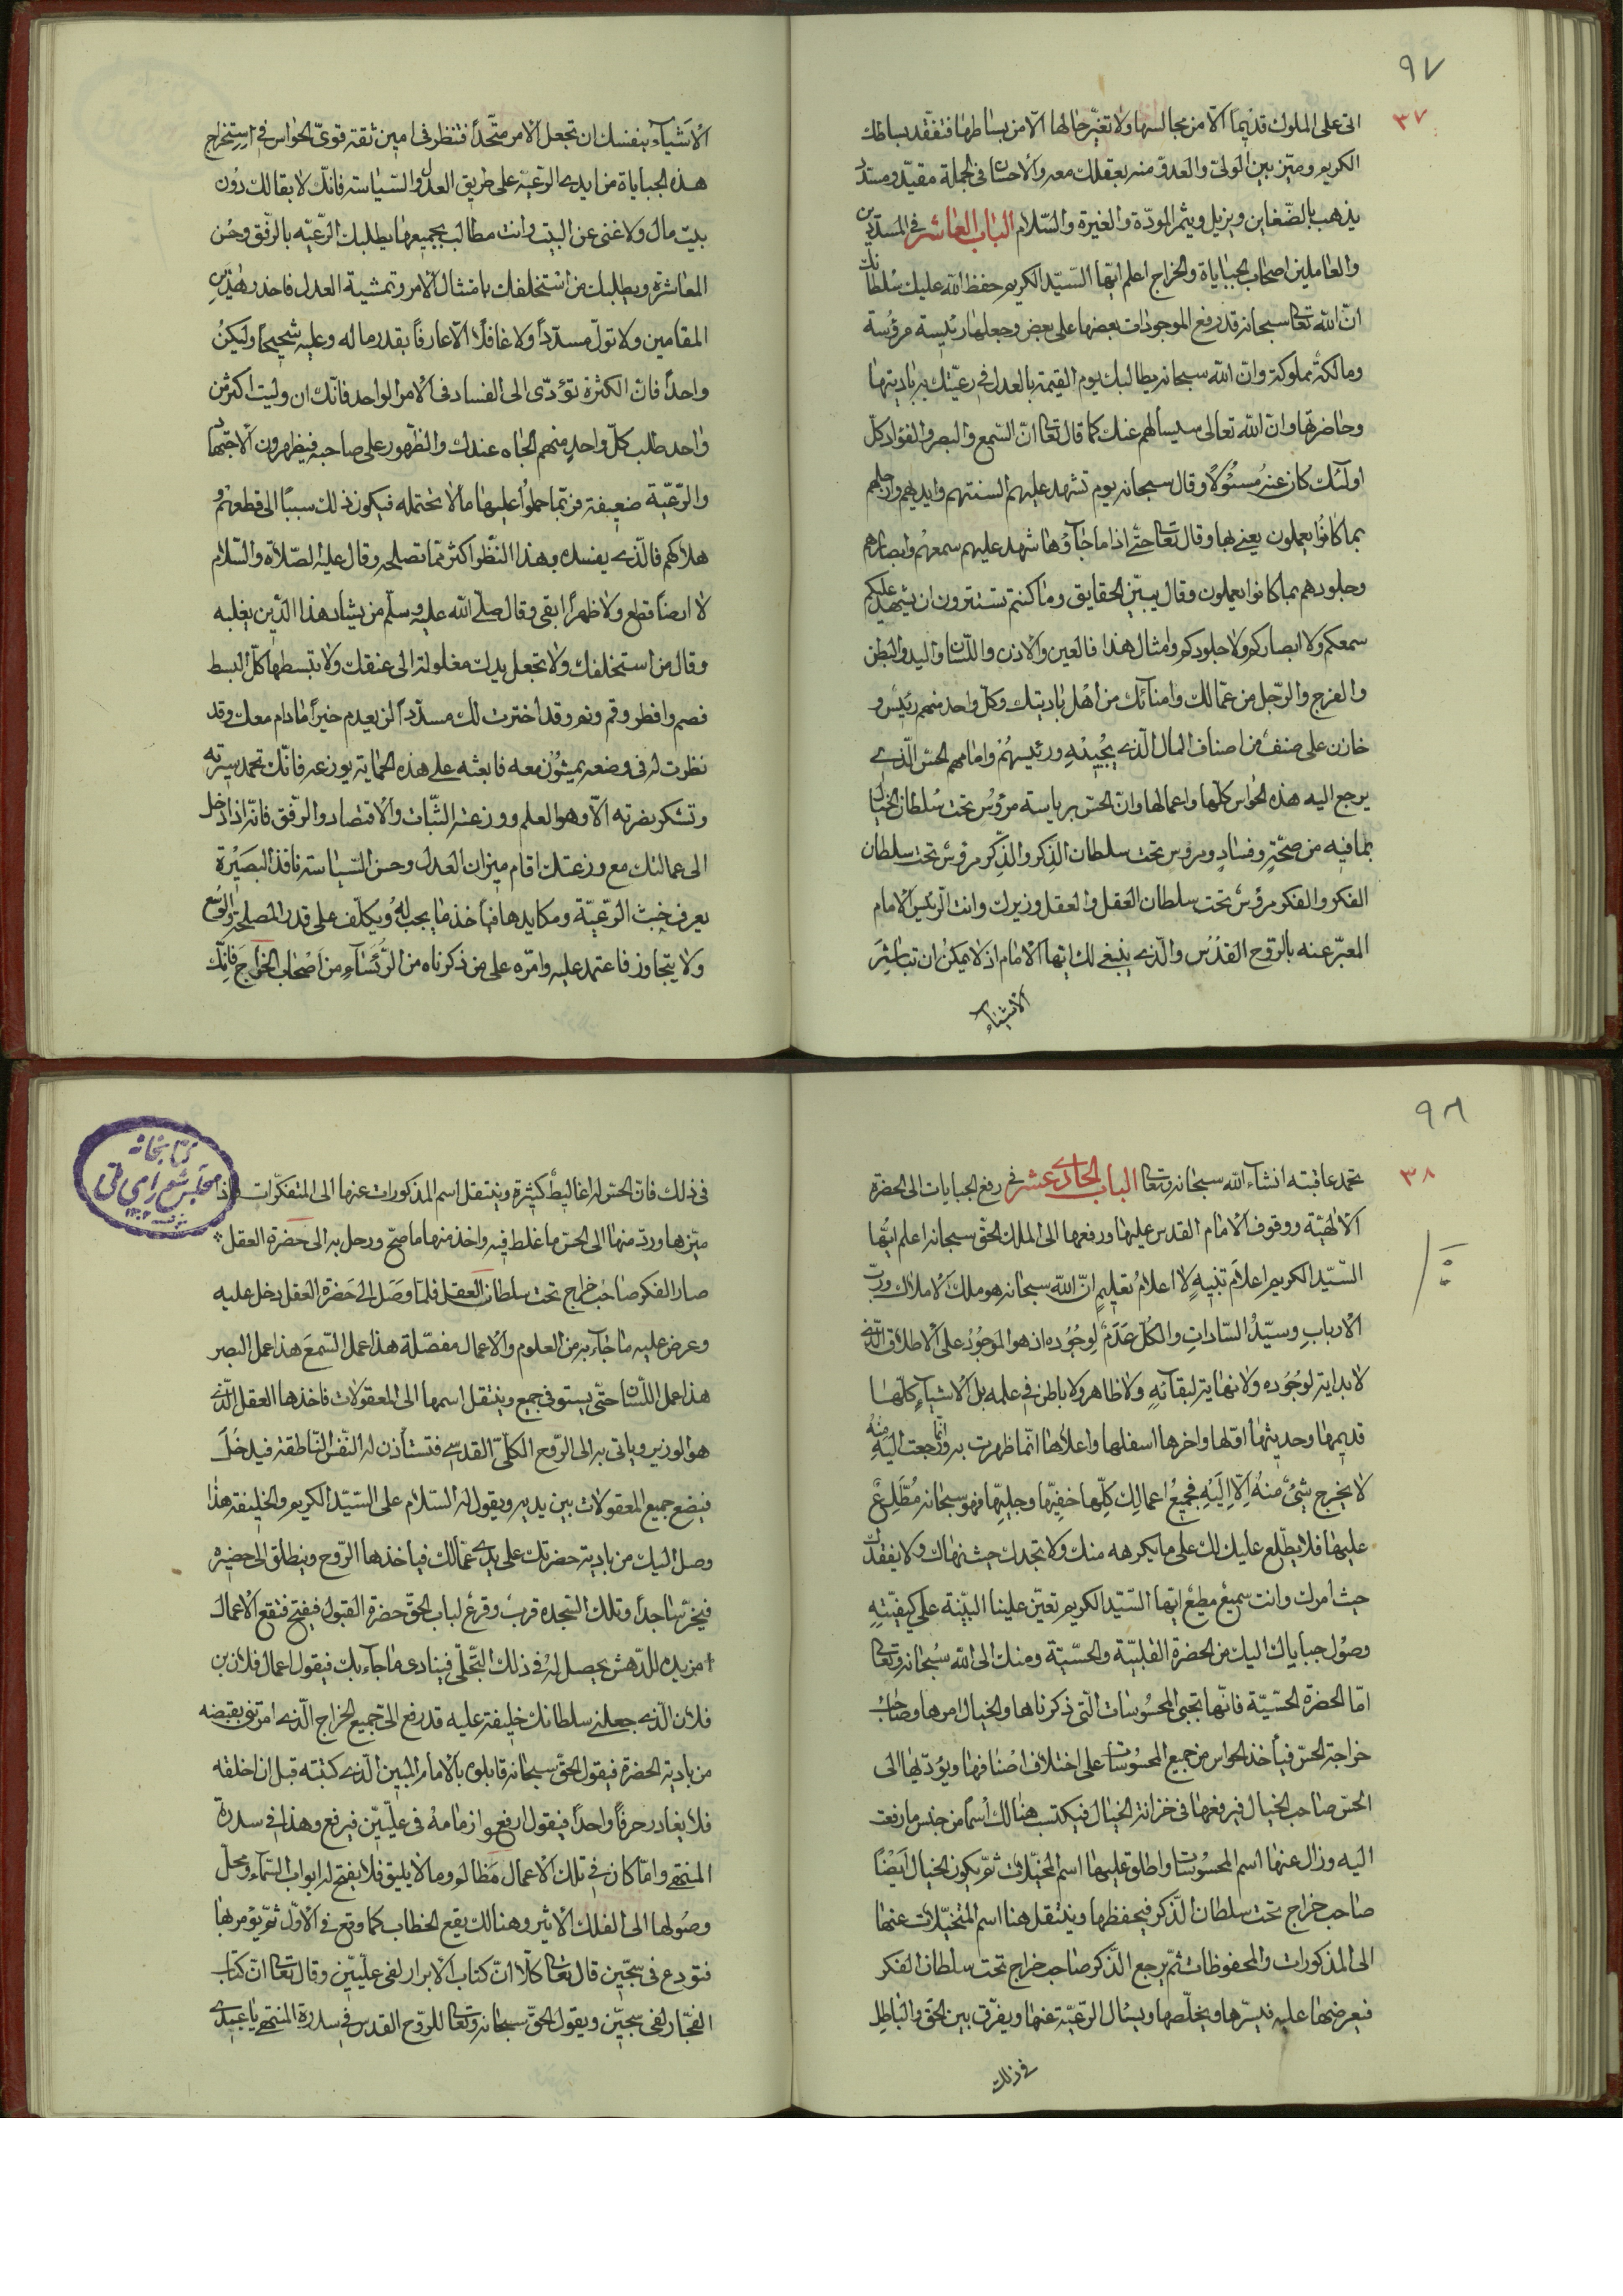 ٩٧
٣٧
اتى على الملوك قديما الّا من مجالسها ولا تغيّر حالها الّا من بساطها فتفقد بساطك
الكريم وميّز بين الولىّ والعدوّ منه بعقلك معه والاحسان فى الجملة مقيّد ومستبد
يذهب بالضّغاين ويزيل ويثمر المودّة والغيرة والسّلام الباب العاشر فى المسدّدين
والعاملين اصحاب الجباياة والخراج اعلم ايّها السّيّد الكريم حفظ الله عليك سُلطانك
انّ الله تعالى سبحانه قد رفع الموجودات بعضها على بعض وجعلها رئيسة مرؤسة
ومالكة مملوكة وانّ الله سبحانه يطالبك يوم القيمة بالعدل فى رعيّتك بر باديتها
وحاضرتها وانّ الله تعالى سيسألهم عنك كما قال تعالى انّ السّمع والبصر والفؤاد كلّ
اولئك كان عنه مسئولًا وقال سبحانه يوم تشهد عليهم السنتهم وايديهم وارجلهم
بما كانوا يعملون يعنى بها وقال تعالى حتّى اذا ما جآؤها شهد عليهم سمعهم وابصارهم
وجلودهم بما كانوا يعملون وقال يبيّن الحقايق وما كنتم تستترون ان يشهد عليكم
سمعكم ولا ابصاركم ولا جلودكم وامثال هذا فالعين والاذن واللّسان واليد والبطن
والفرج والرّجل من عمّالك وامنائك من اهل باديتك وكلّ واحد منهم رئيس و
خازن على صنف من اصناف المال الّذى يُجبيه ورئيسهم وامامهم الحسّ الّذى
يرجع اليه هذه الحواس كلّها واعمالها وانّ الحسّ برياسته مرؤس تحت سُلطان الخيال
بما فيه من صحّةٍ وفسادٍ ومرؤس تحت سلطان الذِكر والذِّكر مرؤس تحت سلطان
الفكر والفكر مرؤس تحت سلطان العقل والعقل وزيرك وانت الرّئيس الامام
المعبّر عنه بالرّوح القدُس والّذى ينبغى لك ايّها الامام اذ لا يمكن ان تباشِرَ
الاشياء
الْاشياء بنفسك ان تجعل الامر متّحداً فتنظر فى امين ثقة قوىّ الحواس فى استخراج
هذه الجباياة من ايدى الرّعيّة على طريق العدل والسّياسة فانّك لا بقا لك دون
بيت مال ولا غنى عن البيت وانت مطالب بجميعها يطلبك الرّعيّه بالرّفق وحُسن
المعاشرة ويطلبك من استخلفك بامتثال الامر وتمشية العدل فاحذر هٰذين
المقامين ولا تولّ مسدّداً ولا غافلًا الّا عارفاً بقدر ما له وعليه شحيحًا وليكن
واحداً فانّ الكثرة تؤدّى الى الفساد فى الامر الواحد فانّك ان وليت اكثر من
واحد طلب كلّ واحدٍ منهم الجاه عندك والظّهور على صاحبه فيظهرون الاجتهاد
والرّعيّة ضعيفة فربّما حملوا عليها ما لا تحتمله فيكون ذلك سببًا الى قطعهم و
هلاكهم فالّذى يفسده بهذا النّظر اكثر ممّا تصلحه وقال عليه الصّلاة والسّلام
لا ارضاً قطع ولا ظهراً ابقى وقال صلّى الله عليه وسلّم من يشاد هذا الدّين يغلبه
وقال من استخلفك ولا تجعل يدك مغلولة الى عنقك ولا تبسطها كلّ البسط
فصم وافطر وقم ونم وقد اخترت لك مسدّداً لن يعدم خيراً مادام معك وقد
نظرت له فى وضعه يمشون معه فابعثه على هذه الحماية يوزعه فانّك تحمد سيرته
وتشكر بضرته الّا وهو العلم ووزعته الثّبات والاقتصاد والرّفق فانّه اذا دخل
الى عمالتك مع وزعتك اقام ميزان العدل وحسن السّياسة نافذ البصَيْرة
يعرف خبث الرّعيّة ومكايدها فيأخذ ما يجب له ويكلّف على قدر المصلحة والوُسع
ولا يتجاوز فاعتمد عليه وامّره على من ذكرناه من الرُّئسَاء من اصْحاب الخراج فانّك
٩٨
٣٨
تحمد عاقبته انشاء الله سبحانه وتعالى الباب الحادى عشر فى رفع الجبايات الى الحضرة
الالهيّة ووقوف الامام القدس عليها ورفعها الى الملك الحقّ سبحانه اعلم ايّها
السّيّد الكريم اعلام تنبيهٍ لا اعلامُ تعليمٍ انّ الله سبحانه هو ملك الاملاك وربّ
الاربابِ وسيّدُ السّاداتِ والكلّ عَدَمٌ لِوجُوده اذ هو الموجُودُ على الاطلاق الّذى
لا بداية لوجُوده ولا نهاية لبقائه ولا ظاهر ولا باطن فى علمه بل الاشياء كلّها
قديمها وحديثها اوّلها واخرها اسفلها واعلاها انّما ظهرت به وانّما رجعت اليه منه
لا يخرج شىءٌ منه اِلّا اِليهِ فجميعُ اعمالك كلّها خفيّها وجليّها فهو سبحانه مُطّلِعٌ
عليها فلا يطّلع عليك لك على ما يكرهه منك ولا تجدك حيث نهاك ولا يفقدك
حيث امرك وانت سميع مطيع ايّها السّيّد الكريم تعيّن علينا البيّنة على كيفيّته
وصُول جباياك اليك من الحضرة القلبيّة والحسّيّة ومنك الى الله سُبحانه وتعالى
امّا الحضرة الحسّيّة فانّها تجبى المحسُوسات الّتى ذكرناها والخيال امرها وصاحب
خراجة الحسّ فيأخذ الحواس من جميع المحسُوسات على اختلاف اصنافها ويؤدّيها الى
الحسّ صاحب الخيال فيرفعها فى خزانة الخيال فيكتسب هنالك اسماً من جنس ما رفعت
اليه وزال عنها اسم المحسُوسات واطلق عليها اسم المخيّلات ثمّ يكون الخيال ايضًا
صاحب خراج تحت سلطان الذّكر فيحفظها وينتقل هنا اسم المتخيّلات عنها
الى المذكورات والمحفوظات ثمّ يرجع الذّكر صاحب خراج تحت سلطان الفكر
فيعرضها عليه فيسّرها ويخلّصها ويسئال الرّعيّة عنها ويفرّق بين الحقّ والباطِل
فى ذلك
فى ذلك فانّ الحسّ له اغاليطُ كثيرة وينتقل اسم المذكورات عنها الى المتفكّرات فاذا
ميّزها وردّ منها الى الحسّ ما غلط فيه واخذ منها ما صحّ ورحل به الى حضرة العقل
صار الفكر صاحب خراج تحت سلطان العقل فلمّا وصَل الى حَضرة العقل دخل عليه
وعرض عليه ما جاء به من العلوم والاعمال مفصّلة هذا عمل السّمع هذا عمل البصر
هذا عمل اللّسان حتّى يستوفى جميع وينتقل اسمها الى المعقولات فاخذها العقل الّذى
هو الوزير وياتى به الى الرّوح الكلّىّ القدسى فتستأذن له النّفس النّاطقة فيدخُل
فيضع جميع المعقولات بين يديه ويقول له السّلام على السّيّد الكريم والخليفة هذا
وصل اليك من بادية حضرتك على يدى عمّالك فيأخذها الرّوح وينطلق الى حضيرة
فيخرّ ساجداً وتلك السّجدة قرب وقرع لباب الحقّ حضرة القبول فيفتح فتقع الاعمال
من يده للدّهش يحصل له فى ذلك التّجلّى فينادى ما جآء بك فيقول اعمال فلان بن
فلان الّذى جعلنى سلطانك خليفة عليه قد رفع الىّ جميع الخراج الّذى امرتنى بقبضه
من بادية الحضرة فيقول الحقّ سبحانه قابلوه بالامام المبين الّذى كتبته قبل ان اخلقه
فلا يغادر حرفاً واحداً فيقول ارفعوا زمامهُ فى علّيّين فيرفع وهذا فى سدرة
المنتهى وامّا كان فى تلك الاعمال مَظالم وما لا يليق فلا يفتح له ابواب السّمآء ومحلّ
وصُولها الى الفلك الاثير وهنالك يقع الخطاب كما وقع فى الاوّل ثمّ يؤمر بها
فتودع فى سجّين قال تعالى كلّا انّ كتاب الابرار لفى علّيّين وقال تعالى انّ كتاب
الفجّار لفى سجّين ويقول الحقّ سبحانه وتعالى للرّوح القدس فى سدرة المنتهى يا عبدى
كتابخانه
مجلس شوراى ملى